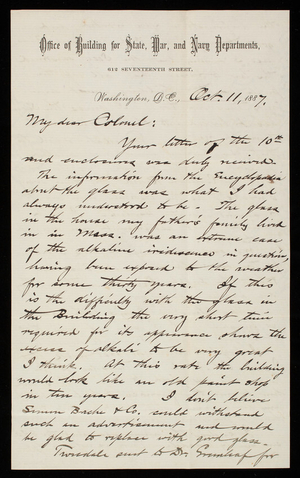 Office of Building for State, War, and Navy Departments,
612 SEVENTEENTH STREET,
Washington, D.C., Oct. 11, 1887.
My dear Colonel:
Your letter of the 10th
and enclosures was duly received.
The information from the Encyclopedia
about the glass was what I had
always understood to be. The glass
in the house my father's family lived
in in Mass. was an extreme case
of the alkaline iridescence in question,
having been exposed to the weather
for some thirty years. If this
is the difficulty with the glass in
the Building the very short time
required for its appearance shows the
excess of alkali to be very great
I think. At this rate the building
would look like an old paint shop
in ten years. I don't believe
Semon Bache & Co. could withstand
such an advertisement and would
be glad to replace with good glass.
Truesdale sent to Dr. Greenleaf for